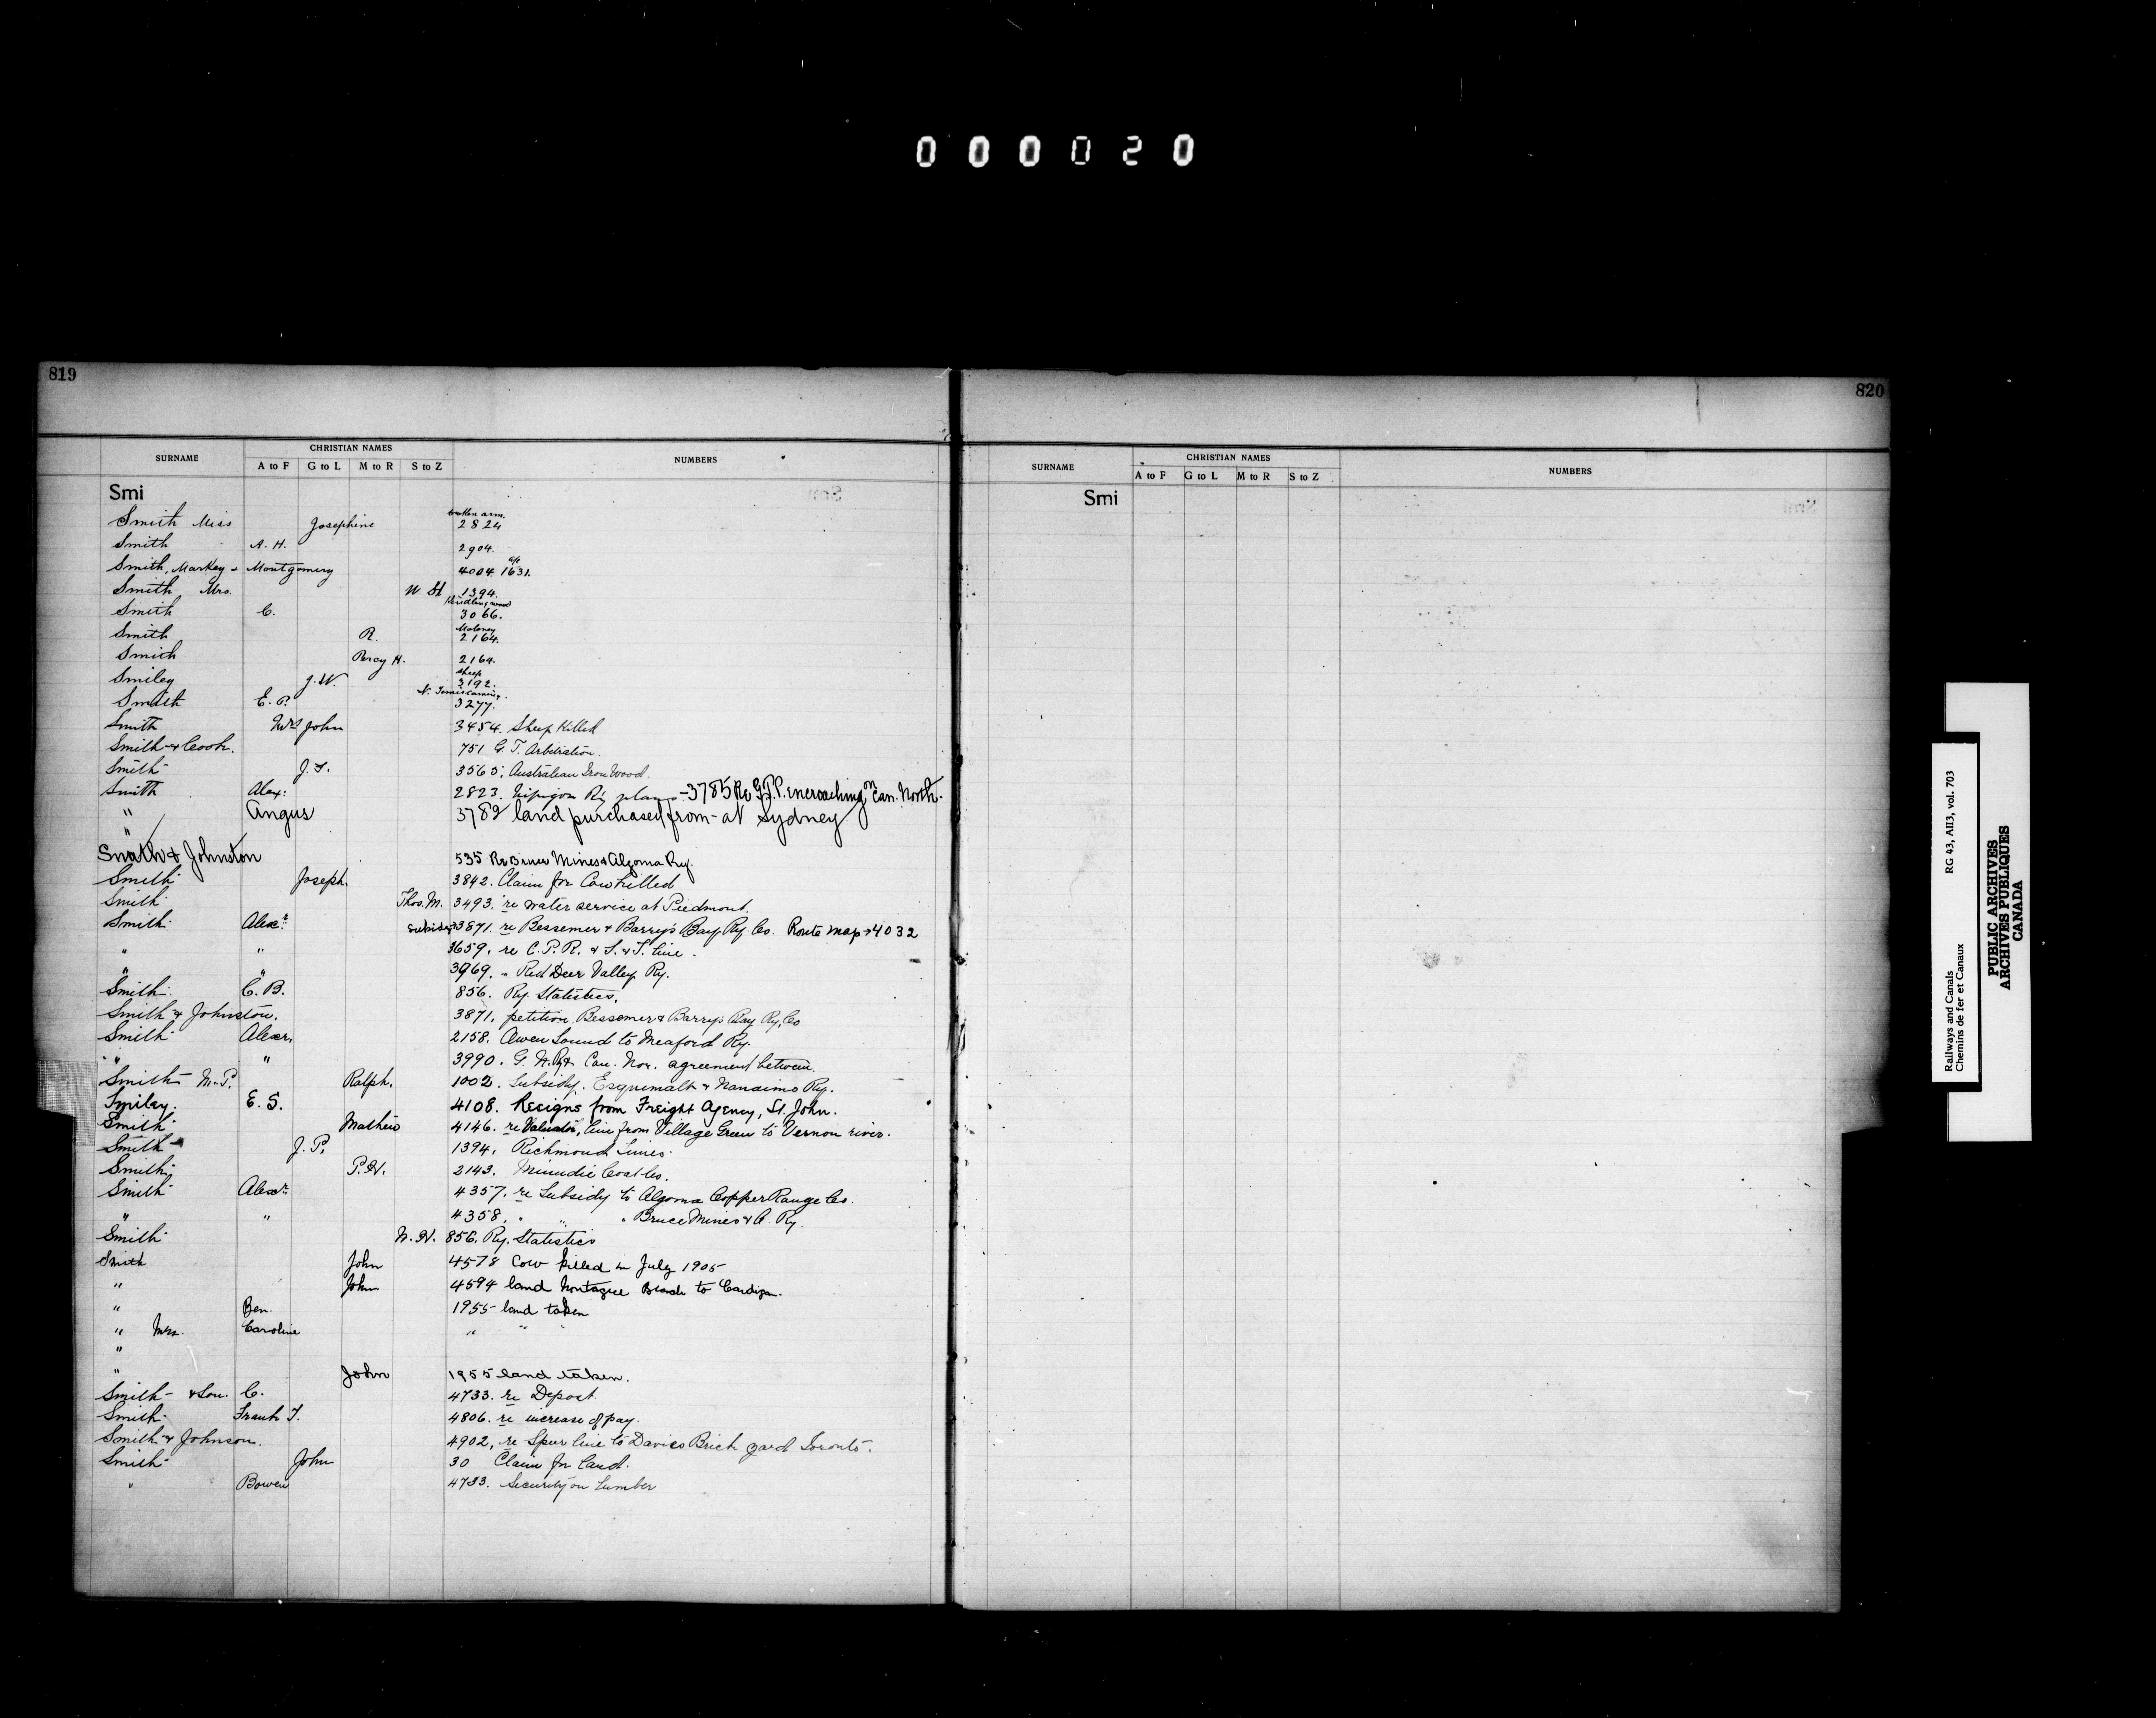 000020
819
SURNAME CHRISTIAN NAMES NUMBERS
A to F G to L M to R S to Z
Smi
Smith Miss Josephine broken arm. 2824
Smith A. H. 2904.
Smith, Markey & Montgomery 4004. 1631.
Smith Mrs. W H 1394.
Smith C. Kindling wood 3066.
Smith R. Moloney 2164.
Smith Percy H. 2164.
Smiley J. W. Sheep 3192.
Smith E. P. N. Temiscaming. 3277.
Smith Mrs John 3454. Sheep Killed
Smith & Cook. 751 G. T. Arbitration.
Smith J. S. 3565. Australian Iron Wood.
Smith Alex. 2823. Nipigon Ry plans - 3785 Re G.T.P. encroaching on Can. North.
" Angus 3782 land purchased from - at Sydney
"
Smith & Johnston 535 Re Bruce Mines & Algoma Ry.
Smith Joseph. 3842. Claim for Cow killed
Smith Thos. M. 3493. re water service at Piedmont.
Smith Alexr. subsidy 3871. re Bessemer & Barry's Bay Ry. Co. Route map → 4032
" " 3659. re C. P. R. & S. & T. line.
" " 3969. " Red Deer Valley Ry.
Smith C. B. 856. Ry. Statistics.
Smith & Johnston. 3871. petition Bessemer & Barry's Bay Ry. Co
Smith Alexr. 2158. Owen Sound to Meaford Ry.
" " 3990. G. N. Ry & Can. Nor. agreement between.
Smith M.P. Ralph. 1002. Subsidy. Esquimalt & Nanaimo Ry.
Smiley. E. S. 4108. Resigns from Freight Agency, St. John.
Smith Mathew 4146. re Valuator, line from Village Green to Vernon river.
Smith J. P. 1394. Richmond Limes.
Smith P. W. 2143. Minudie Coal Co.
Smith Alexr. 4357. re Subsidy to Algoma Copper Range Co.
" " 4358. " " " Bruce Mines & A. Ry.
Smith W. W. 856. Ry. Statistics
Smith John 4578 Cow killed in July 1905
" John 4594 land Montague Branch to Cardigan.
" Ben. 1955 land taken
" Mrs. Caroline " " "
"
" John 1955 land taken.
Smith & Son. C. 4733. re Deposit.
Smith Frank T. 4806. re increase of pay.
Smith & Johnson. 4902. re Spur line to Davies Brick yard Toronto.
Smith John 30 Claim for land.
" Bowen 4733. Security on Lumber
820
SURNAME CHRISTIAN NAMES NUMBERS
A to F G to L M to R S to Z
Smi
Railways and Canals RG 43, AII3, vol. 703
Chemins de fer et Canaux
PUBLIC ARCHIVES
ARCHIVES PUBLIQUES
CANADA